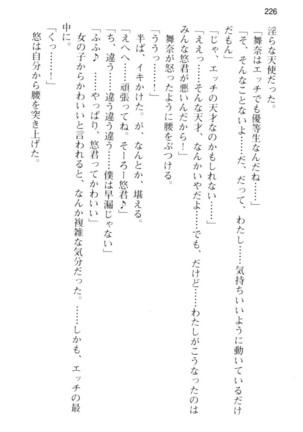 226
淫らな天使だった。
「舞奈はエッチでも優等生なんだね……」
「そ、そんなことないよ……だ、だって、わたし……気持ちいいように動いているだけ
だもん」
「じゃ、エッチの天才なのかもしれない……」
「ええっ……そんな天才、なんかいやだよ……でも、だけど……わたしがこうなったのは
みんな悠君が悪いんだから！」
舞奈が怒ったように腰をぶつける。
「ううっ……！」
半ば、イキかけた。が、なんとか、堪える。
「えへへ……頑張ってね。そーろー悠君♪」
「ち、違う……違う違う違う……僕は早漏じゃない」
「ふふ♪……やっぱり、悠君ってかわいい」
女の子からかわいいと言われると、なんか複雑な気分だった。……しかも、エッチの最
中に。
「くっ……！」
悠は自分から腰を突き上げた。